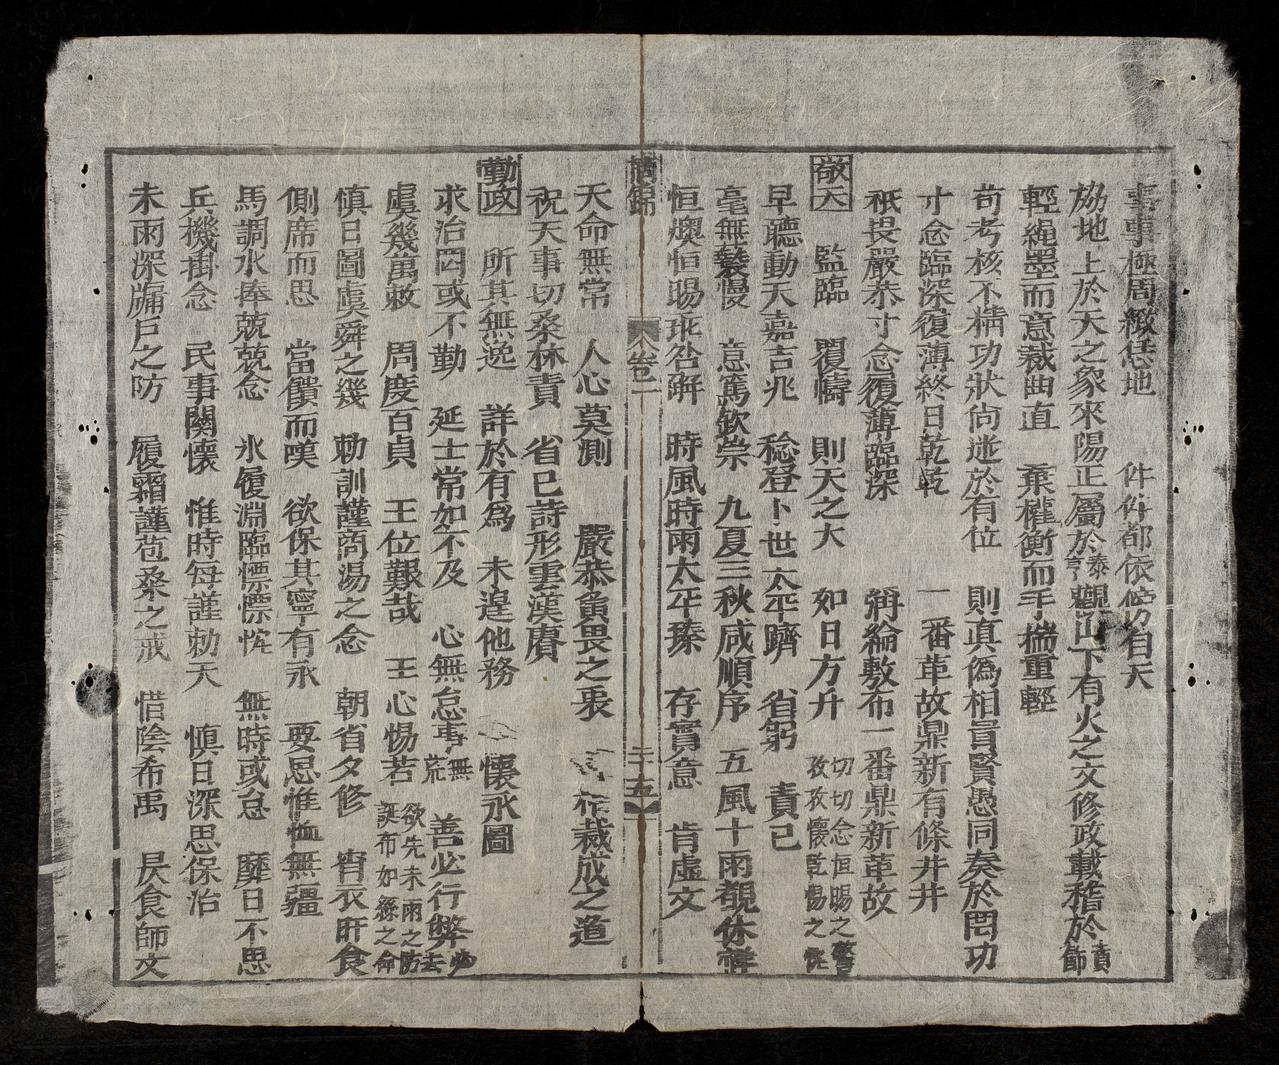 事事極周緻恁地　件件都依傍自天
協地上於天之象來陽正屬於泰亨觀山下有火之文修政載稽於賁飾
輕繩墨而意裁曲直　棄權衡而手揣重輕
苟考核不精功狀尙迷於有位　則真僞相冒賢愚同奏於罔功
寸念臨深復薄終日乾乾　一番革故鼎新有條井井
祇畏嚴恭寸念復薄臨深　彌綸敷布一番鼎新革故
敬天　監臨　覆幬　則天之大　如日方升　切切念恒暘之警　孜孜懷乾惕之
早聽動天嘉吉兆　稔登卜世太平躋　省躬　責已
毫無褻慢　意篤欽崇　九夏三秋咸順序　五風十雨覩休祥
恒燠恒暘珎咎𭶑　時風時雨太平臻　存實意　肯虛文
錦　卷二　二十五
天命無常　人心莫測　嚴恭寅畏之衷　裁成之道
祝天事切桑林責　省已詩形雲漢賡
勤政　所其無逸　詳於有爲　未遑他務　懷永圖
求治罔或不勤　延士常如不及　心無怠事無荒　善必行弊必去
虞幾萬敕　周度百貞　王位艱哉　王心惕若　欲先未雨之防　誕布如綸之命
愼日圖虞舜之幾　勅訓謹商湯之念　朝省夕修　宵衣旰食
側席而思　當饋而嘆　欲保其寧有永　要思惟恤無疆
馬調水捧兢兢念　氷履淵臨慄慄　無時或怠　靡日不思
兵機掛念　民事關懷　惟時每謹勅天　愼日深思保治
未雨深牖戶之防　履霜謹苞桑之戒　惜陰希禹　昃食師文